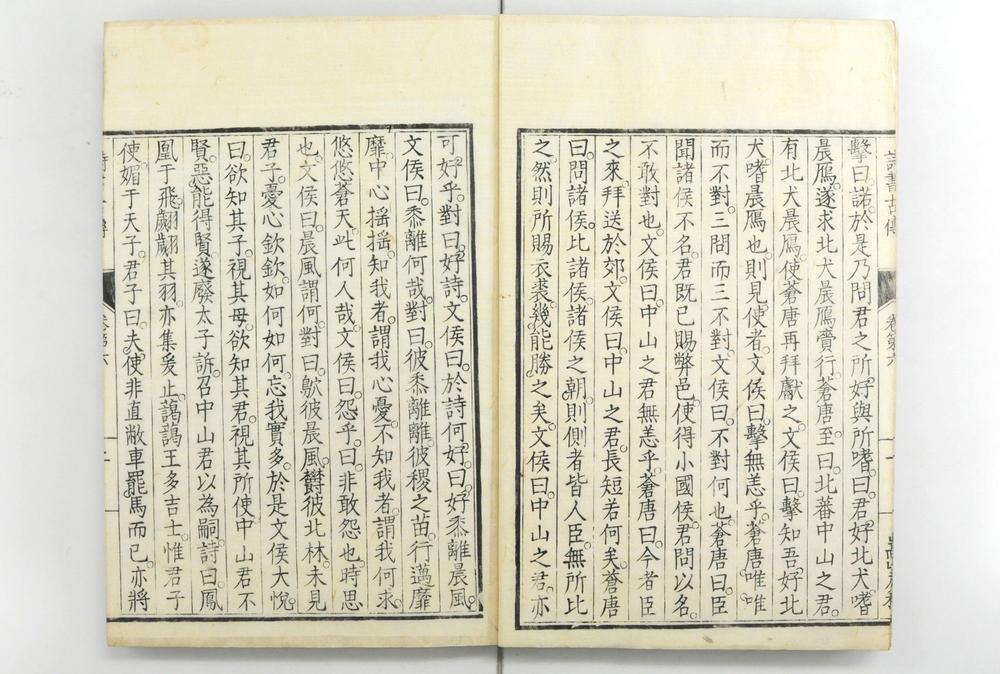 詩書古傳 卷第六 一
擊曰諾於是乃問君之所好與所嗜曰君好北犬嗜
晨鴈遂求北犬晨鴈賷行蒼唐至曰北蕃中山之君
有北犬晨鴈使蒼唐再拜獻之文侯曰擊知吾好北
犬嗜晨鴈也則見使者文侯曰擊無恙乎蒼唐唯唯
而不對三問而三不對文侯曰不對何也蒼唐曰臣
聞諸侯不名君既已賜弊邑使得小國侯君問以名
不敢對也文侯曰中山之君無恙乎蒼唐曰今者臣
之來拜送於郊文侯曰中山之君長短若何矣蒼唐
曰問諸侯比諸侯諸侯之朝則側者皆人臣無所比
之然則所賜衣裘幾能勝之矣文侯曰中山之君亦
可好乎對曰好詩文侯曰於詩何好曰好黍離晨風
文侯曰黍離何哉對曰彼黍離離彼稷之苗行邁靡
靡中心揺揺知我者謂我心憂不知我者謂我何求
悠悠蒼天此何人哉文侯曰怨乎曰非敢怨也時思
也文侯曰晨風謂何對曰鴥彼晨風鬱彼北林未見
君子憂心欽欽如何如何忘我實多於是文侯大悅
曰欲知其子視其母欲知其君視其所使中山君不
賢惡能得賢遂廢太子訴召中山君以為嗣詩曰鳳
凰于飛翽翽其羽亦集爰止藹藹王多吉士惟君子
使媚于天子君子曰夫使非直敝車罷馬而已亦將